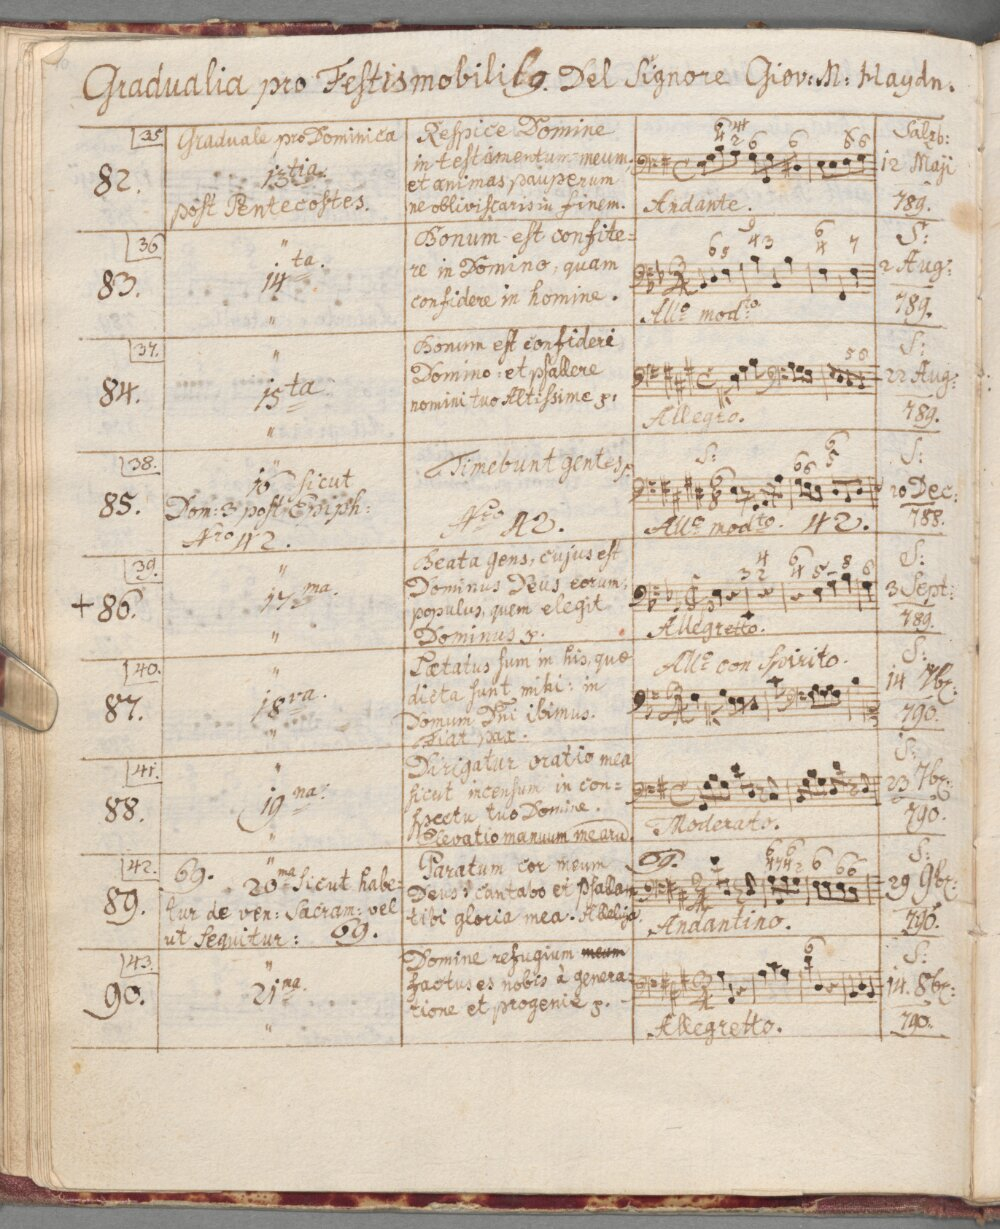 Gradualia pro Festis mobilib9. Del Signore Giov: M: Haydn.
35
82.
Graduale pro Dominica
13tia.
post Pentecostes.
Respice Domine
in testamentum meum,
et animas pauperum
ne obliviscaris in finem.
Andante.
Salzb:
12 Maji
789.
36
83.
"
14ta.
"
Bonum est confite=
re in Domino, quam
confidere in homine.
Allo modto
S:
2 Aug:
789.
37.
84.
"
15ta
"
Bonum est confideri
Domino: et psallere
nomini tuo Altissime
Allegro.
S:
22 Aug:
789.
38.
85.
"
16 sicut
Dom: 3 post Epiph:
Nro 42.
Timebunt gentes
Nro 42.
S:
Allo modto. 42.
S:
20 Dec:
788.
39.
+ 86.
"
17ma.
"
Beata gens, cujus est
Dominus Deus eorum,
populus, quem elegit
Dominus
Allegretto.
S:
3 Sept:
789.
40.
87.
"
18va.
"
Lætatus sum in his, quæ
dicta sunt mihi: in
Domum Dni ibimus.
Fiat pax.
Allo con Spirito.
S:
14 7br:
790.
41.
88.
"
19na.
"
Dirigatur oratio mea
sicut incensum in con=
spectu tuo Domine.
Elevatio manuum mearu.
Moderato.
S:
23 7br:
790.
42.
89.
69. "
20ma Sicut habe=
tur de ven: Sacram: vel
ut sequitur: 69.
Paratum cor meum
Deus; cantabo et psallam
tibi gloria mea. Alleluja.
69.
Andantino.
S:
29 9br:
790.
43.
90.
"
21ma.
"
Domine refugium meum
factus es nobis à genera=
tione et progenie
Allegretto.
S:
14. 8br:
790.